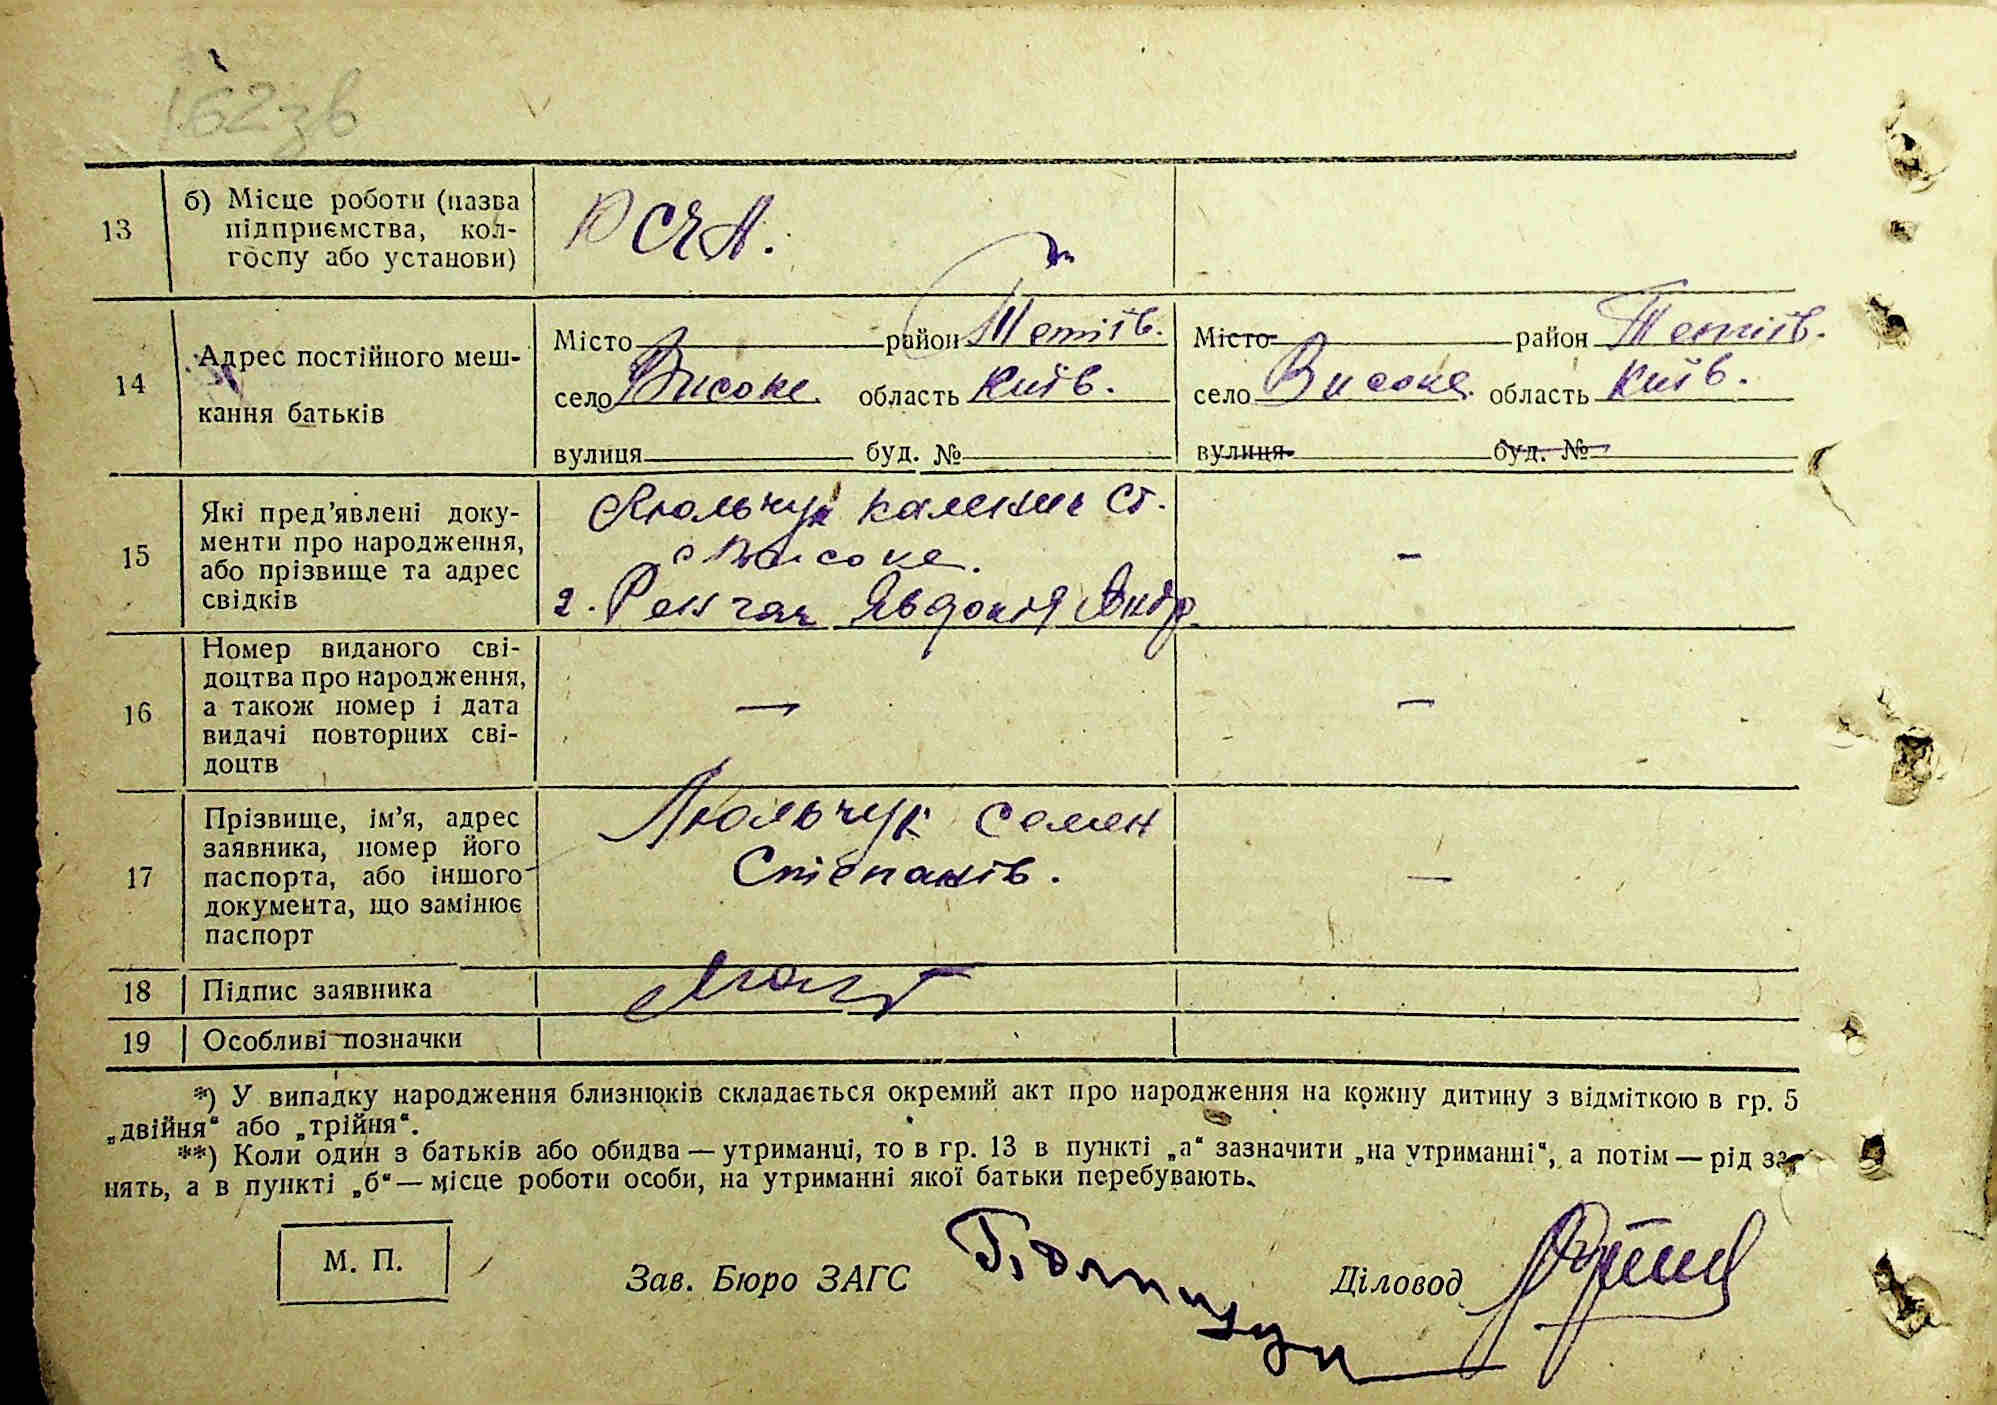 162зв
13
б) Місце роботи (назва
підприємства, кол-
госпу або установи)
РСЧА.
14
Адрес постійного меш-
кання батьків
Місто район Тетіїв.
село Високе область Київ.
вулиця буд. №
Місто район Тетіїв.
село Високе область Київ.
вулиця буд. №
15
Які пред’явлені доку-
менти про народження,
або прізвище та адрес
свідків
Люльчук Ст.
с Високе.
2. Явдокія Андр.
–
16
Номер виданого сві-
доцтва про народження,
а також номер і дата
видачі повторних сві-
доцтв
—
–
17
Прізвище, ім’я, адрес
заявника, номер його
паспорта, або іншого
документа, що замінює
паспорт
Люльчук Семен
Степанів.
—
18
Підпис заявника
19
Особливі позначки
*) У випадку народження близнюків складається окремий акт про народження на кожну дитину з відміткою в гр. 5
„двійня“ або „трійня“.
**) Коли один з батьків або обидва — утриманці, то в гр. 13 в пункті „а“ зазначити „на утриманні“, а потім — рід за-
нять, а в пункті „б“ — місце роботи особи, на утриманні якої батьки перебувають.
М. П.
Зав. Бюро ЗАГС
Діловод